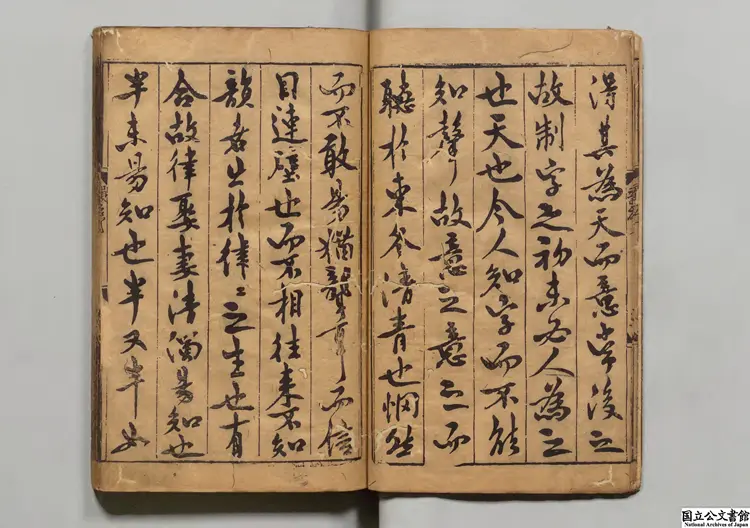 得其為天而意後之
故制字之初未必人為之
也天也今人知字而不能
知聲故意之意之而
聽於東冬清青也惘然
而不敢易猶聾耳而信
目連壁也而不相往来不知
韻者於律〻之生也有
合故律娶妻法猶易知也
半未易知也半又半如
国立公文書館
National Archives of Japan